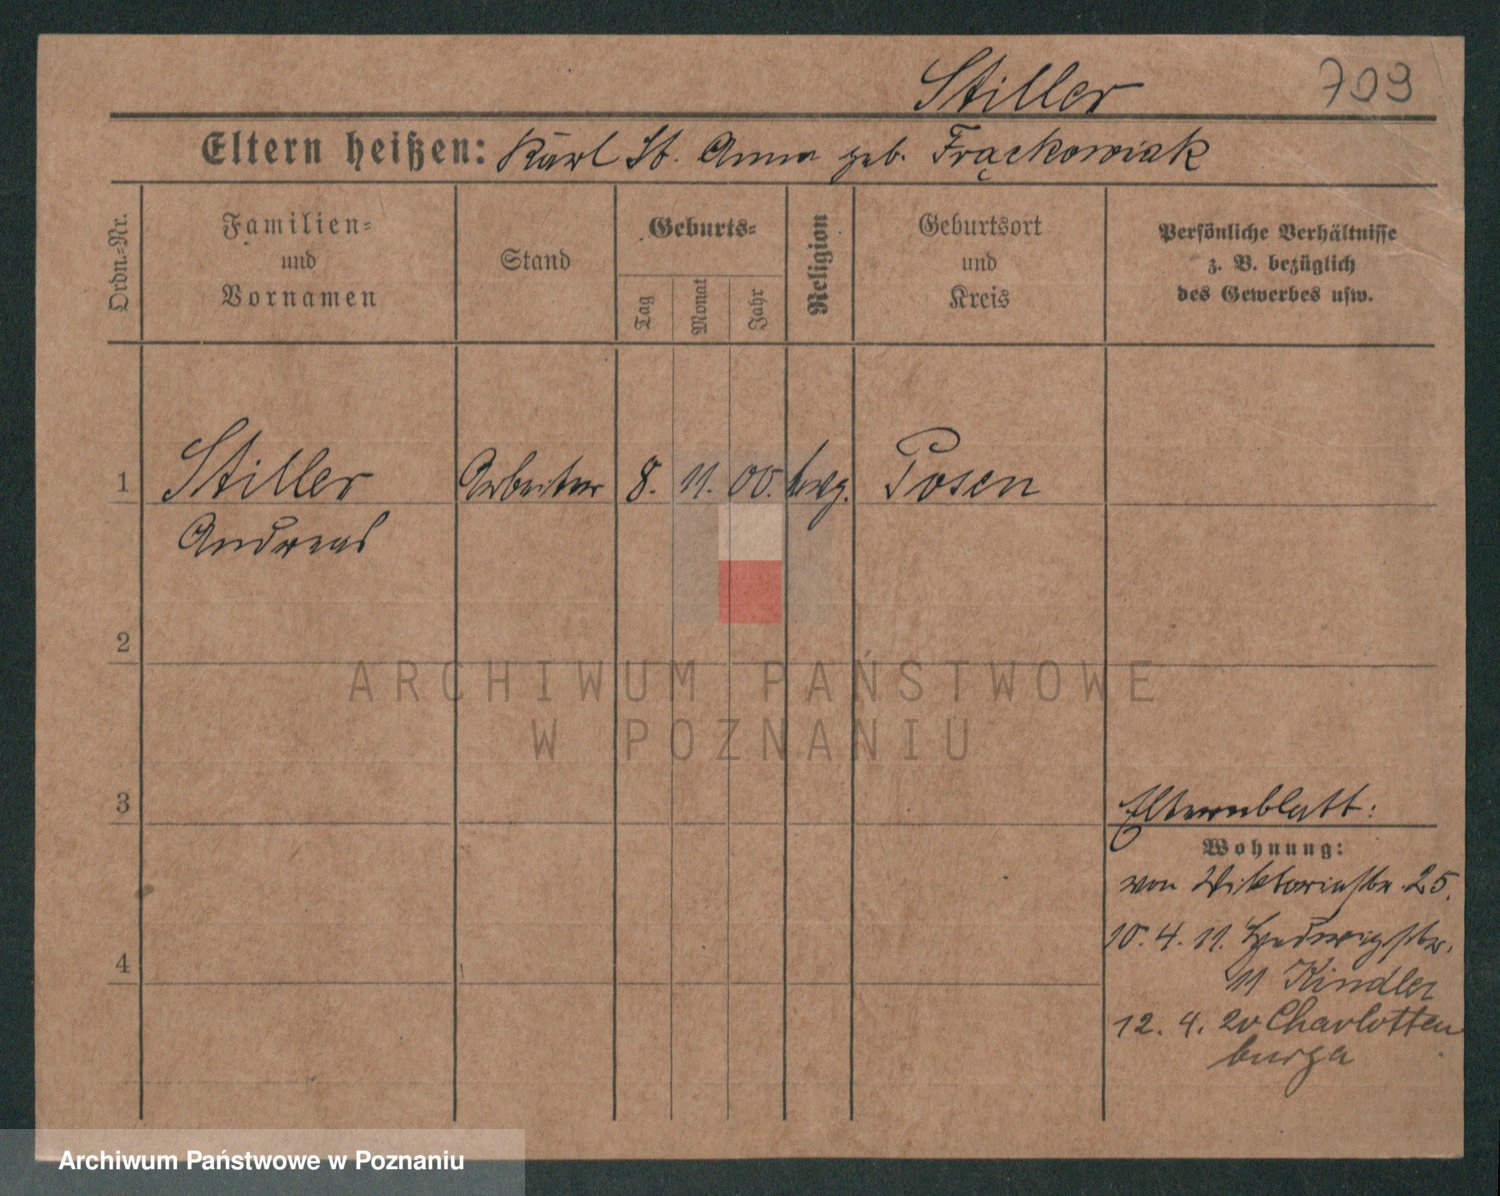 Stiller
709
Eltern heißen: Karl St. Anna geb. Frąckowiak
Ordn.-Nr.
Familien-
und
Vornamen
Stand
Geburts-
Tag
Monat
Jahr
Religion
Geburtsort
und
Kreis
Persönliche Verhältnisse
z. B. bezüglich
des Gewerbes usw.
1 Stiller Arbeiter 8. 11. 00. evg. Posen
Andreas
2
ARCHIWUM PAŃSTWOWE
W POZNANIU
3
Elternblatt:
Wohnung:
von Viktoriastr. 25.
10. 4. 11. Hedwigstr.
11 Kindler
4
12. 4. 20 Charlotten
burga
Archiwum Państwowe w Poznaniu